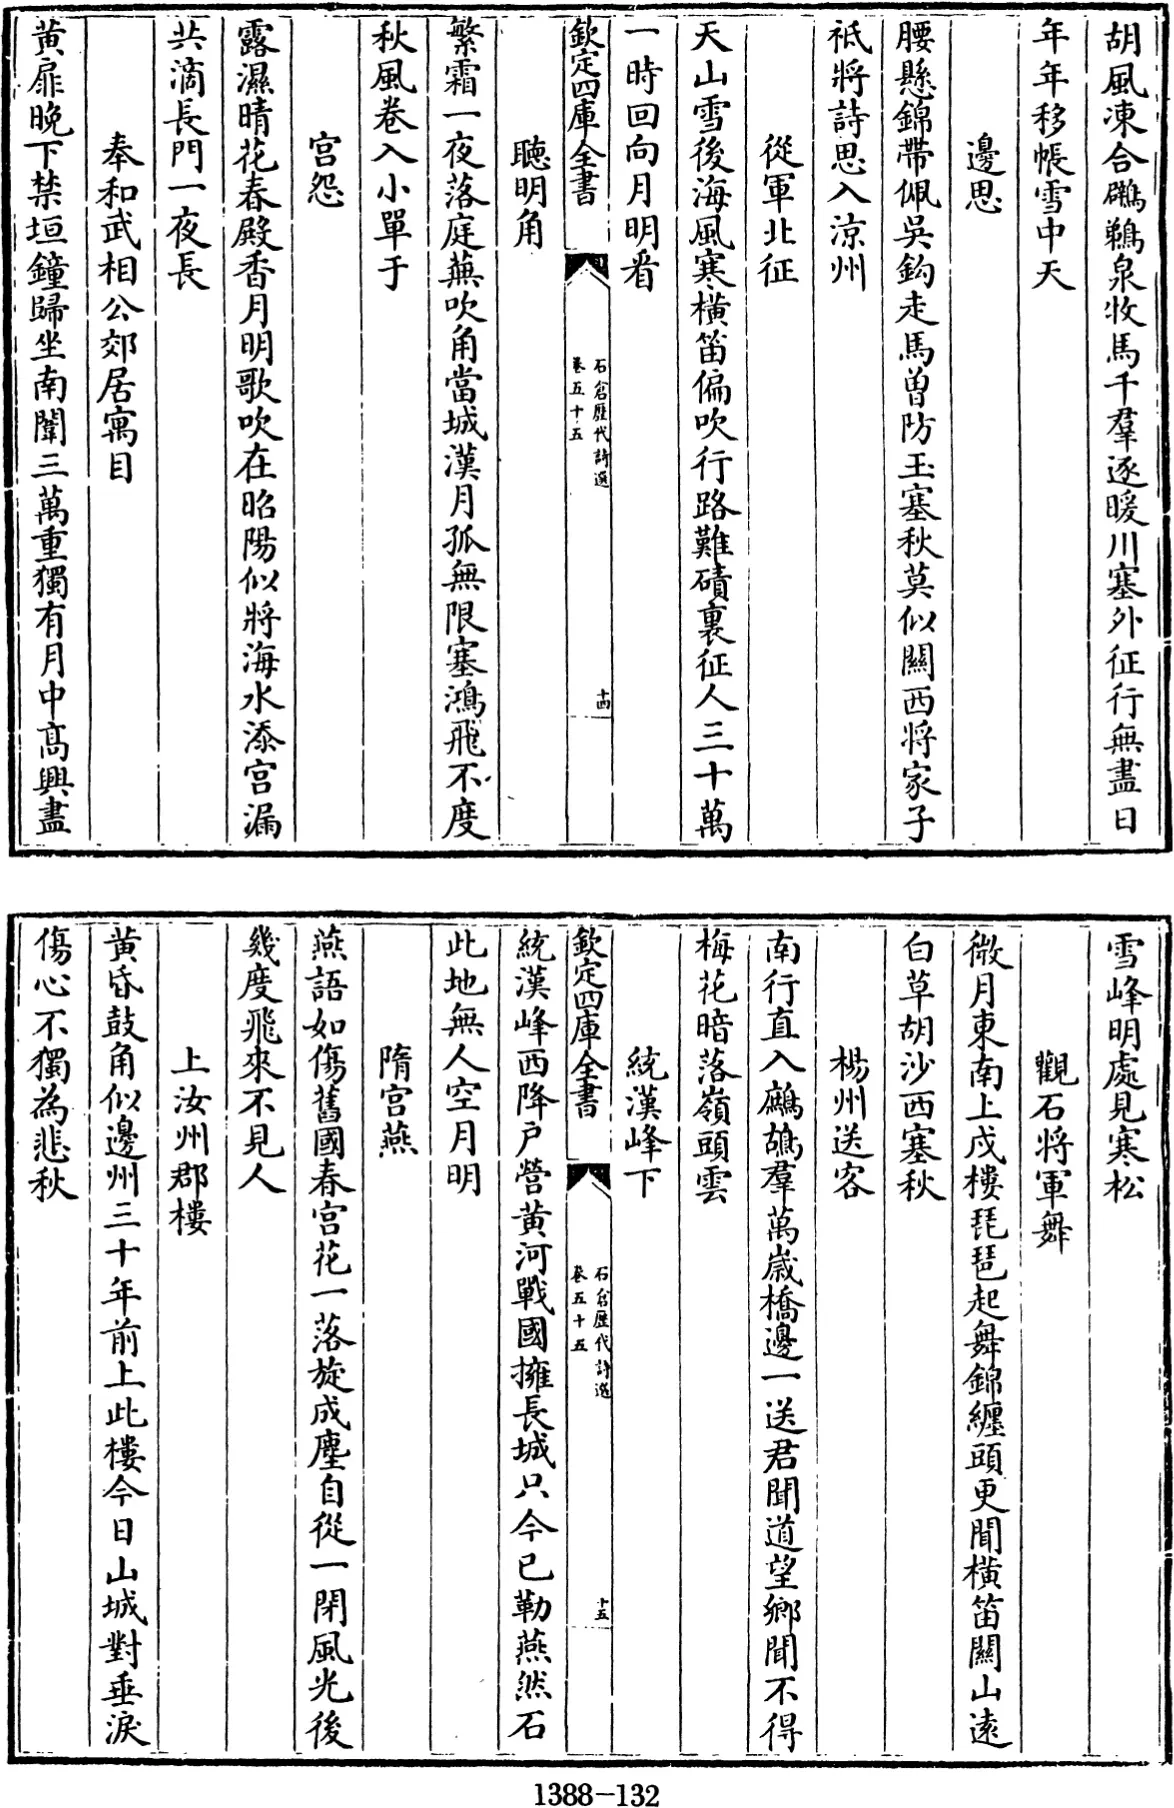 胡風凍合鸊鵜泉牧馬千羣逐暖川塞外征行無盡日
年年移帳雪中天
邊思
腰懸錦帶佩吳鈎走馬曽防玉塞秋莫似關西將家子
祗將詩思入涼州
從軍北征
天山雪後海風寒横笛偏吹行路難磧裏征人三十萬
一時回向月明看
欽定四庫全書
石倉歷代詩選
卷五十五
十四
聽明角
繁霜一夜落庭蕪吹角當城漢月孤無限塞鴻飛不度
秋風卷入小單于
宫怨
露濕晴花春殿香月明歌吹在昭陽似將海水添宫漏
共滴長門一夜長
奉和武相公郊居寓目
黄扉晚下禁垣鐘歸坐南闈三萬重獨有月中髙興盡
雪峰明處見寒松
觀石將軍舞
微月東南上戍樓琵琶起舞錦纏頭更聞横笛關山遠
白草胡沙西塞秋
楊州送客
南行直入鷓鴣羣萬嵗橋邊一送君聞道望鄉聞不得
梅花暗落嶺頭雲
統漢峰下
欽定四庫全書
石倉歷代詩選
卷五十五
十五
統漢峰西降户營黄河戰國擁長城只今已勒燕然石
此地無人空月明
隋宫燕
燕語如傷舊國春宫花一落旋成塵自從一閉風光後
幾度飛來不見人
上汝州郡樓
黄昏鼓角似邊州三十年前上此樓今日山城對垂淚
傷心不獨為悲秋
1388-132